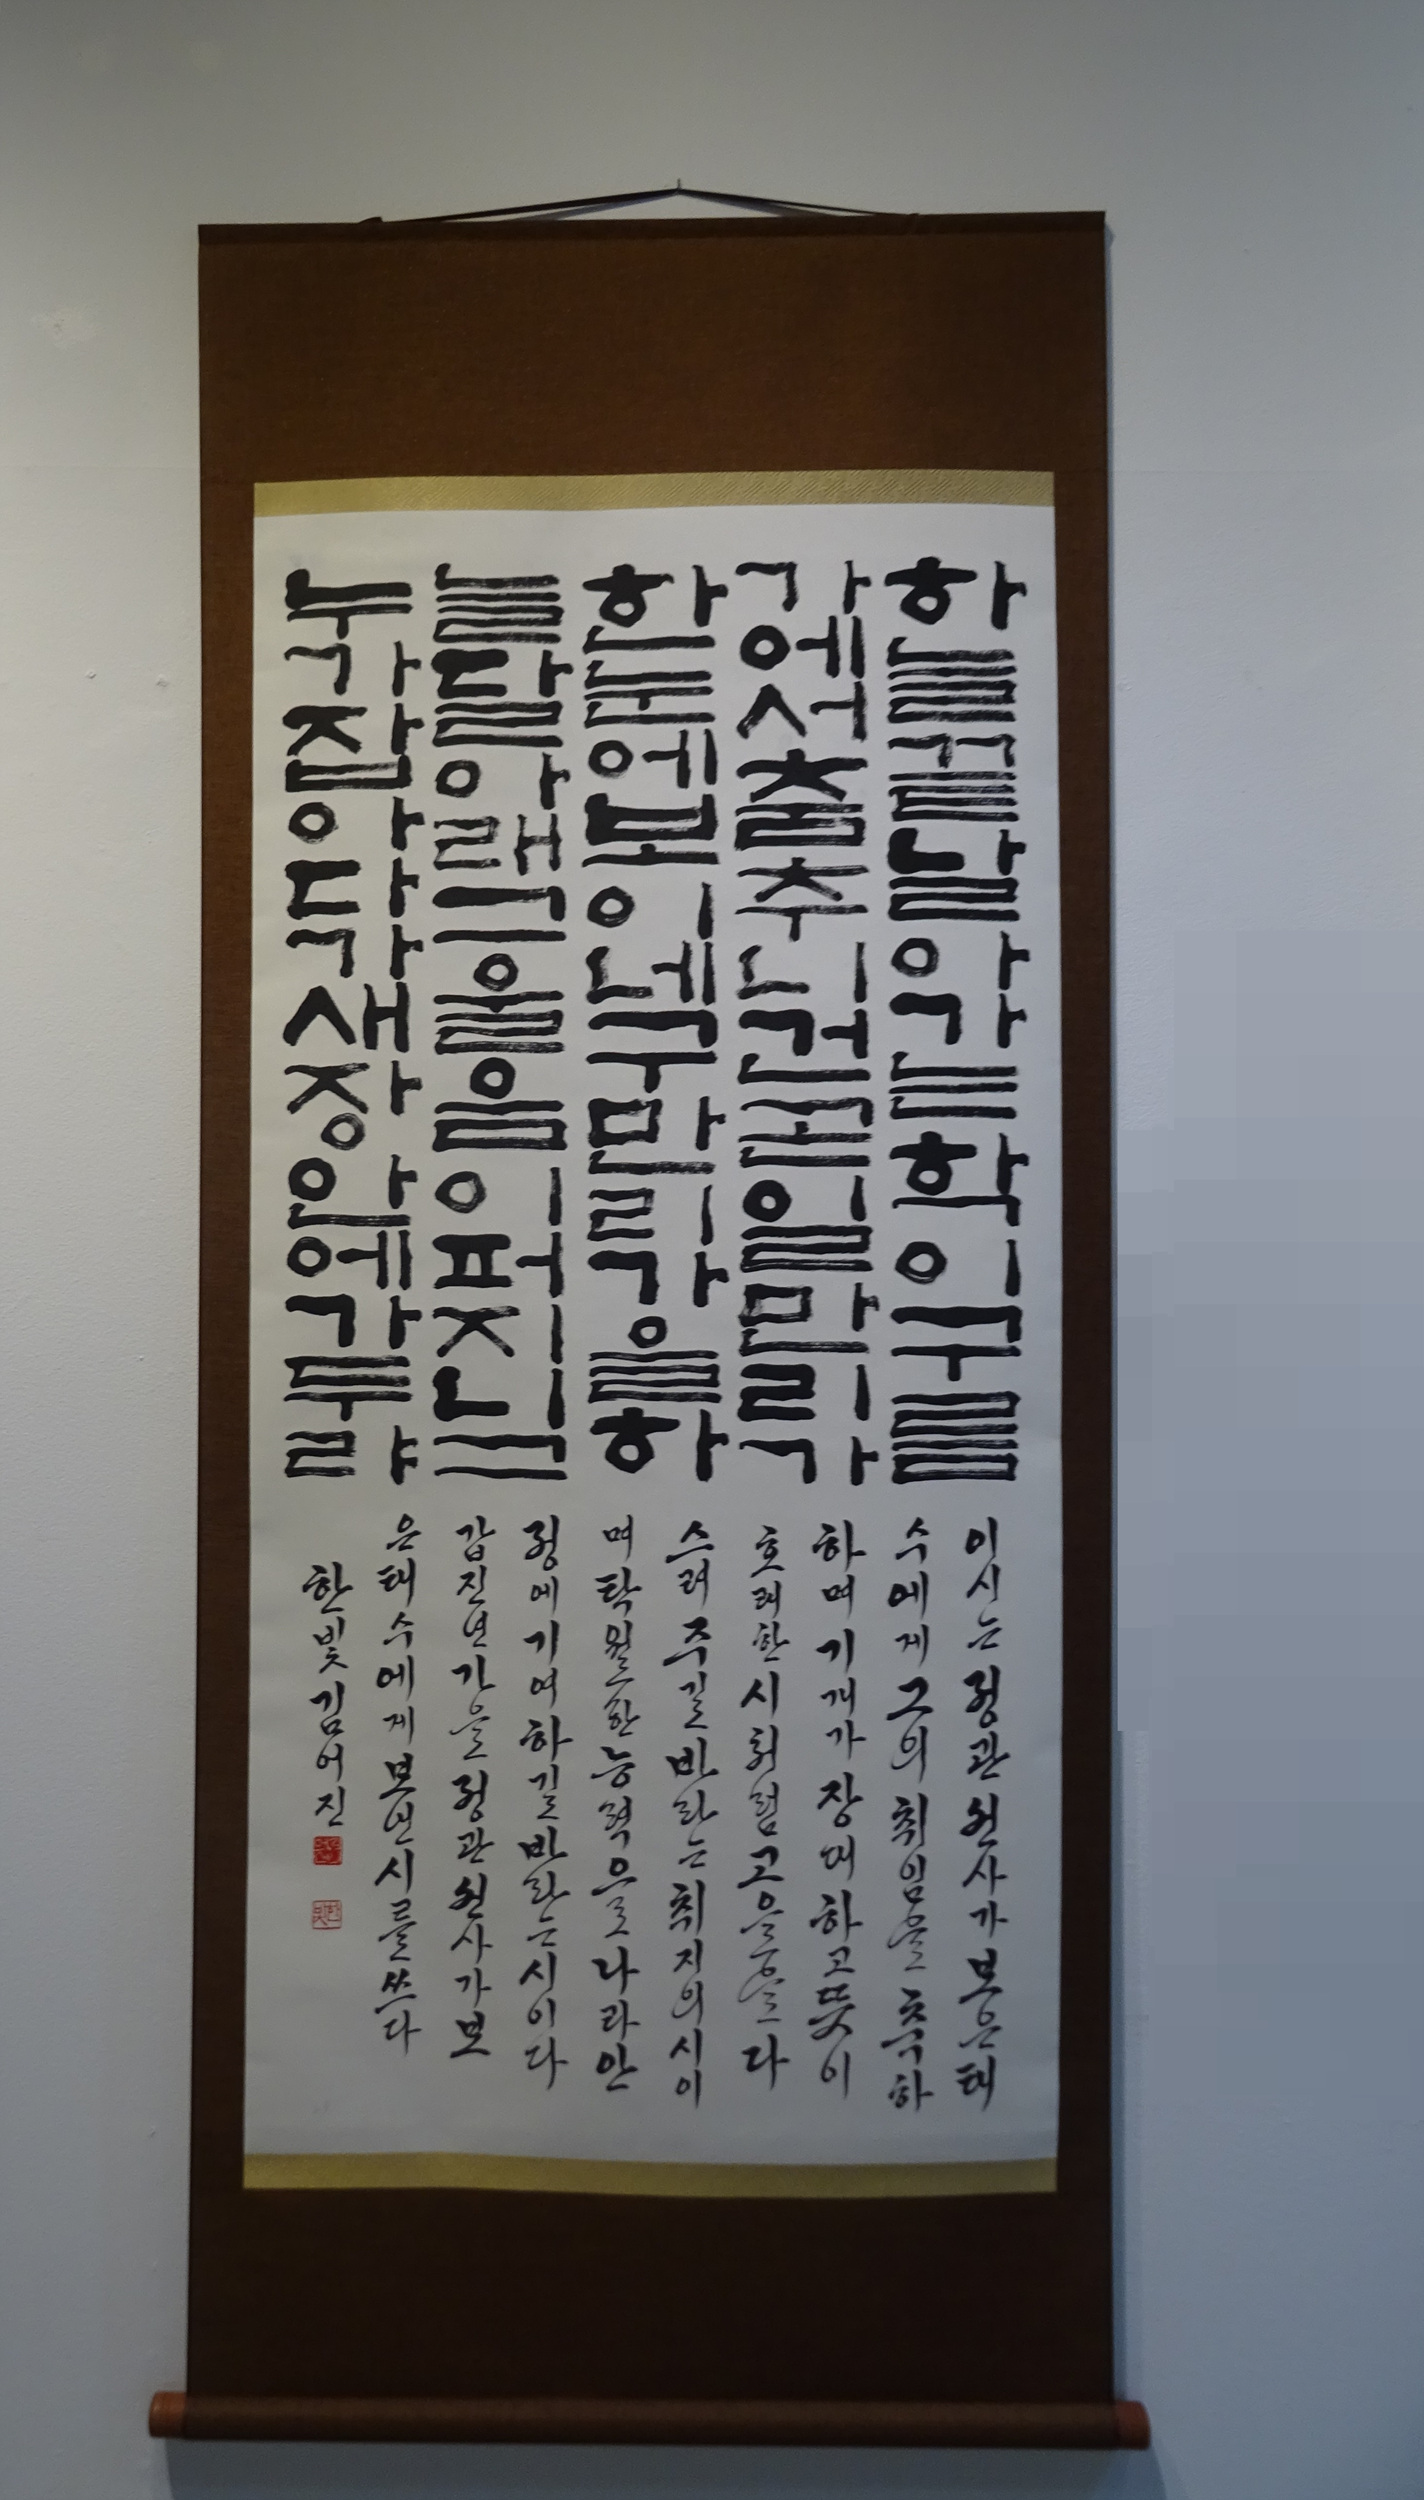 하늘끝날아가는학이구름
가에서춤추니건곤일만리가
한눈에보이네구만리강을하
늘달아래그울음이퍼지니그
누가잡아다가새장안에가두랴
이시는정관원사가보은태
수에게그의취임을축하
하며기개가장대하고뜻이
호려한시처럼고을을다
스려주길바라는취지의시이
며탁월한능력으로나라안
정에기여하길바라는시이다
갑진년가을정관원사가보
은태수에게보낸시를쓰다
한빛김어진